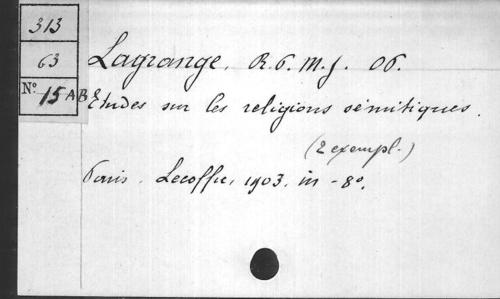 313
63
N° 15 A B
Lagrange, R. P. M. J. OP.
Etudes sur les religions sémitiques.
(2 exempl.)
Paris. Lecoffre, 1903. in -8°.